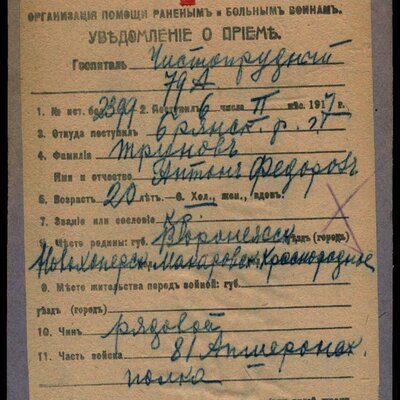 ОРГАНИЗАЦІЯ ПОМОЩИ РАНЕНЫМЪ и БОЛЬНЫМЪ ВОИНАМЪ.
УВѢДОМЛЕНІЕ О ПРІЕМѢ.
Госпиталь Чистопрудный
79А
1. № ист. бол. 2399 2. Поступилъ 6 числа II мѣс. 1917 г.
3. Откуда поступилъ Брянск. р. э.
4. Фамилія Труновъ
Имя и отчество Антонъ Федоровъ
5. Возрастъ 20 лѣтъ.—6. Хол., жен., вдов.
7. Званіе или сословіе кр.
8. Мѣсто родины: губ. Воронежск. уѣздъ (городъ)
Новохоперск. Макаровск. Краснородное
9. Мѣсто жительства передъ войной: губ.
уѣздъ (городъ)
10. Чинъ рядовой
11. Часть войска 81 Апшеронск.
полка